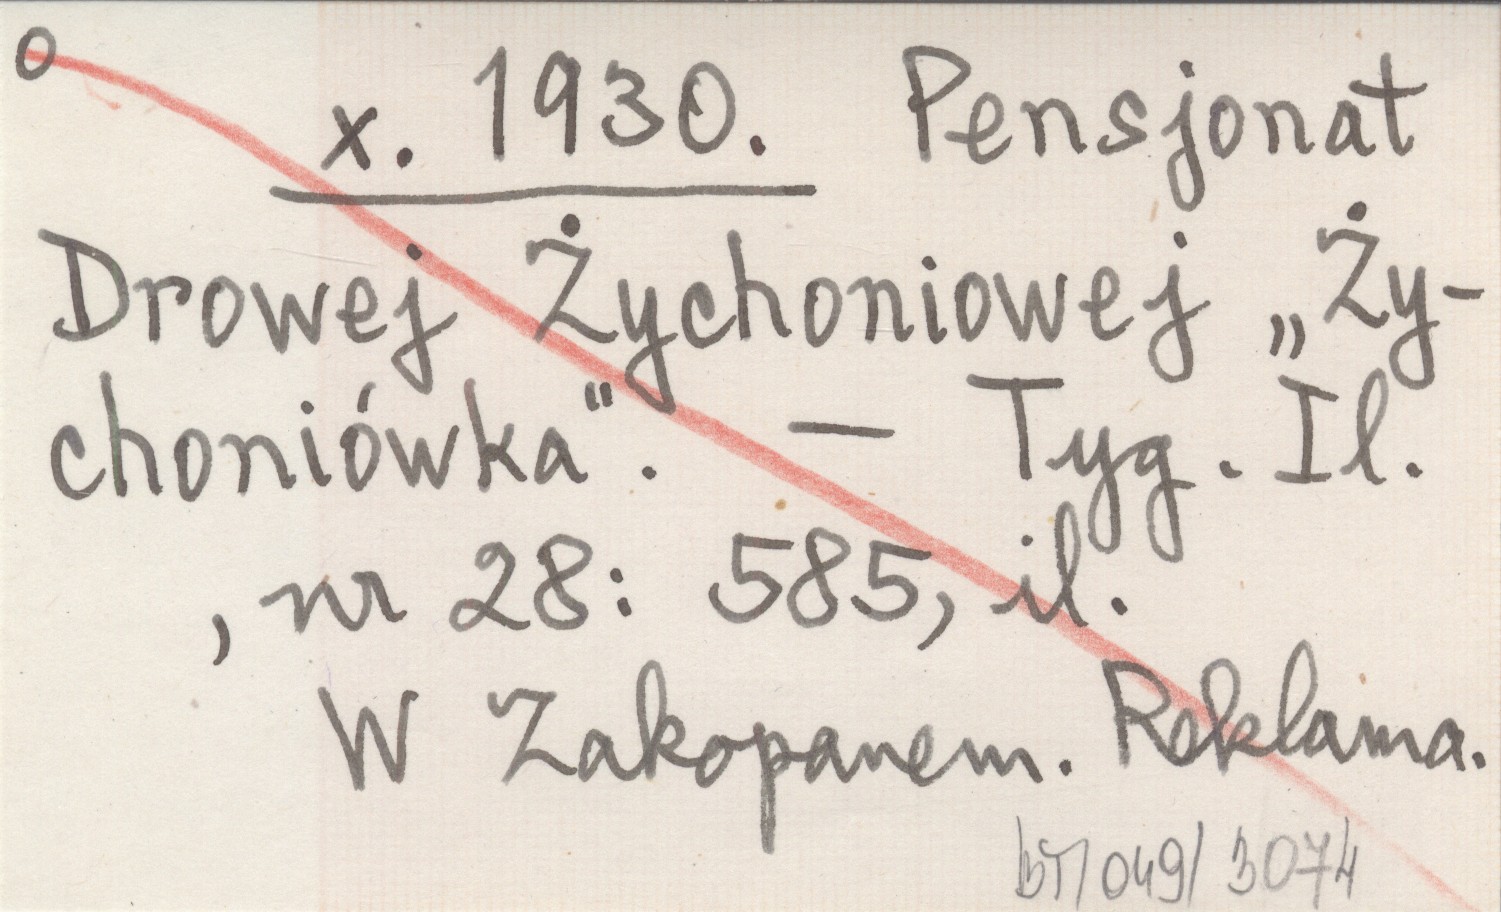 o
x. 1930. Pensjonat
Drowej Żychoniowej „Ży-
choniówka". — Tyg. Il.
, nr 28: 585, il.
W Zakopanem. Reklama.
BT/049/3074